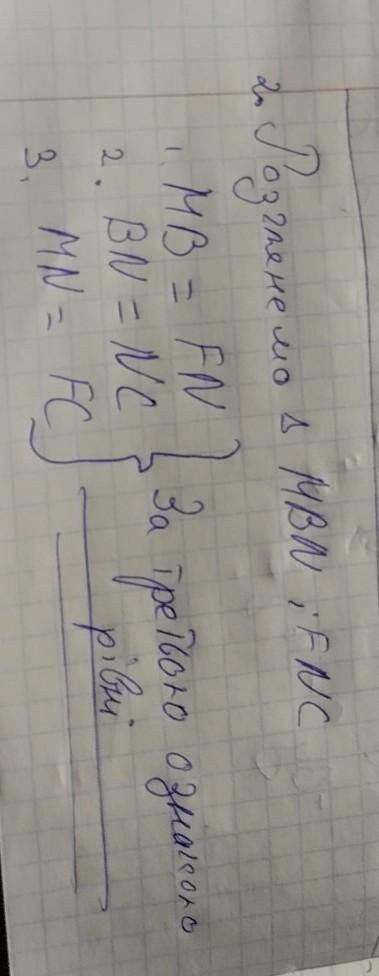 2. Розглянемо Δ MBN i FNC
1. MB = FN
2. BN = NC
3. MN = FC
} За третьою ознакою
рівні